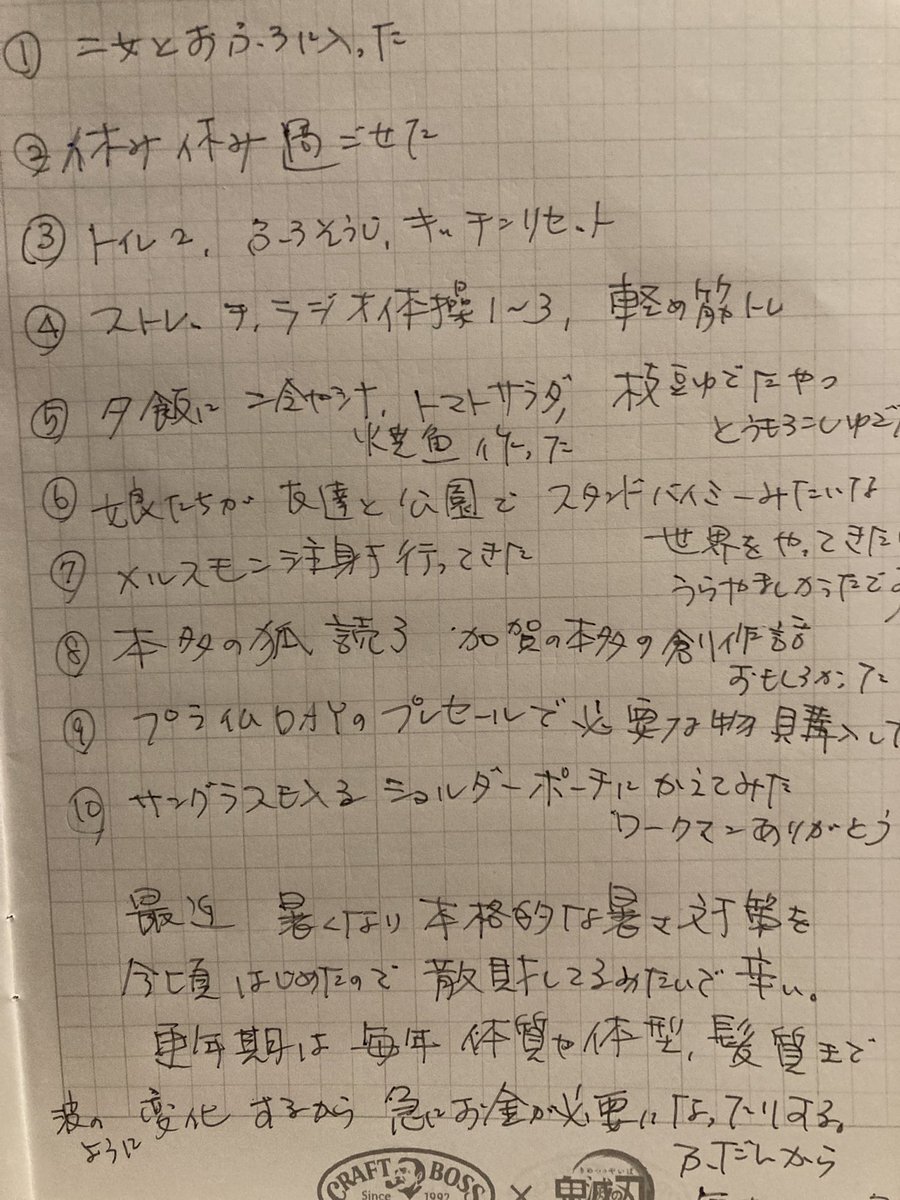 ① 二女とおふろに入った
② 休み休み過ごせた
③ トイレ2、ふろそうじ、キッチンリセット
④ ストレッチ、ラジオ体操1〜3、軽め筋トレ
⑤ 夕飯に 冷や汁、トマトサラダ、枝豆ゆでたやつ
とうもろこしゆで
焼魚 作った
⑥ 娘たちが友達と公園でスタンドバイミーみたいな
世界をやってきた
うらやましかったです
⑦ メルスモン注射行ってきた
⑧ 本多の狐 読了 加賀の本多の創作話
おもしろかった
⑨ プライムDAYのプレセールで必要な物購入して
⑩ サングラスも入るショルダーポーチにかえてみた
ワークマンありがとう
最近 暑くなり本格的な暑さ対策を
今頃はじめたので散財してるみたいで辛い。
更年期は毎年体質や体型、髪質まで
波のように変化するから急にお金が必要になったりする。
ふだんから
CRAFT BOSS
Since 1992
×
きめつのやいば
鬼滅の刃